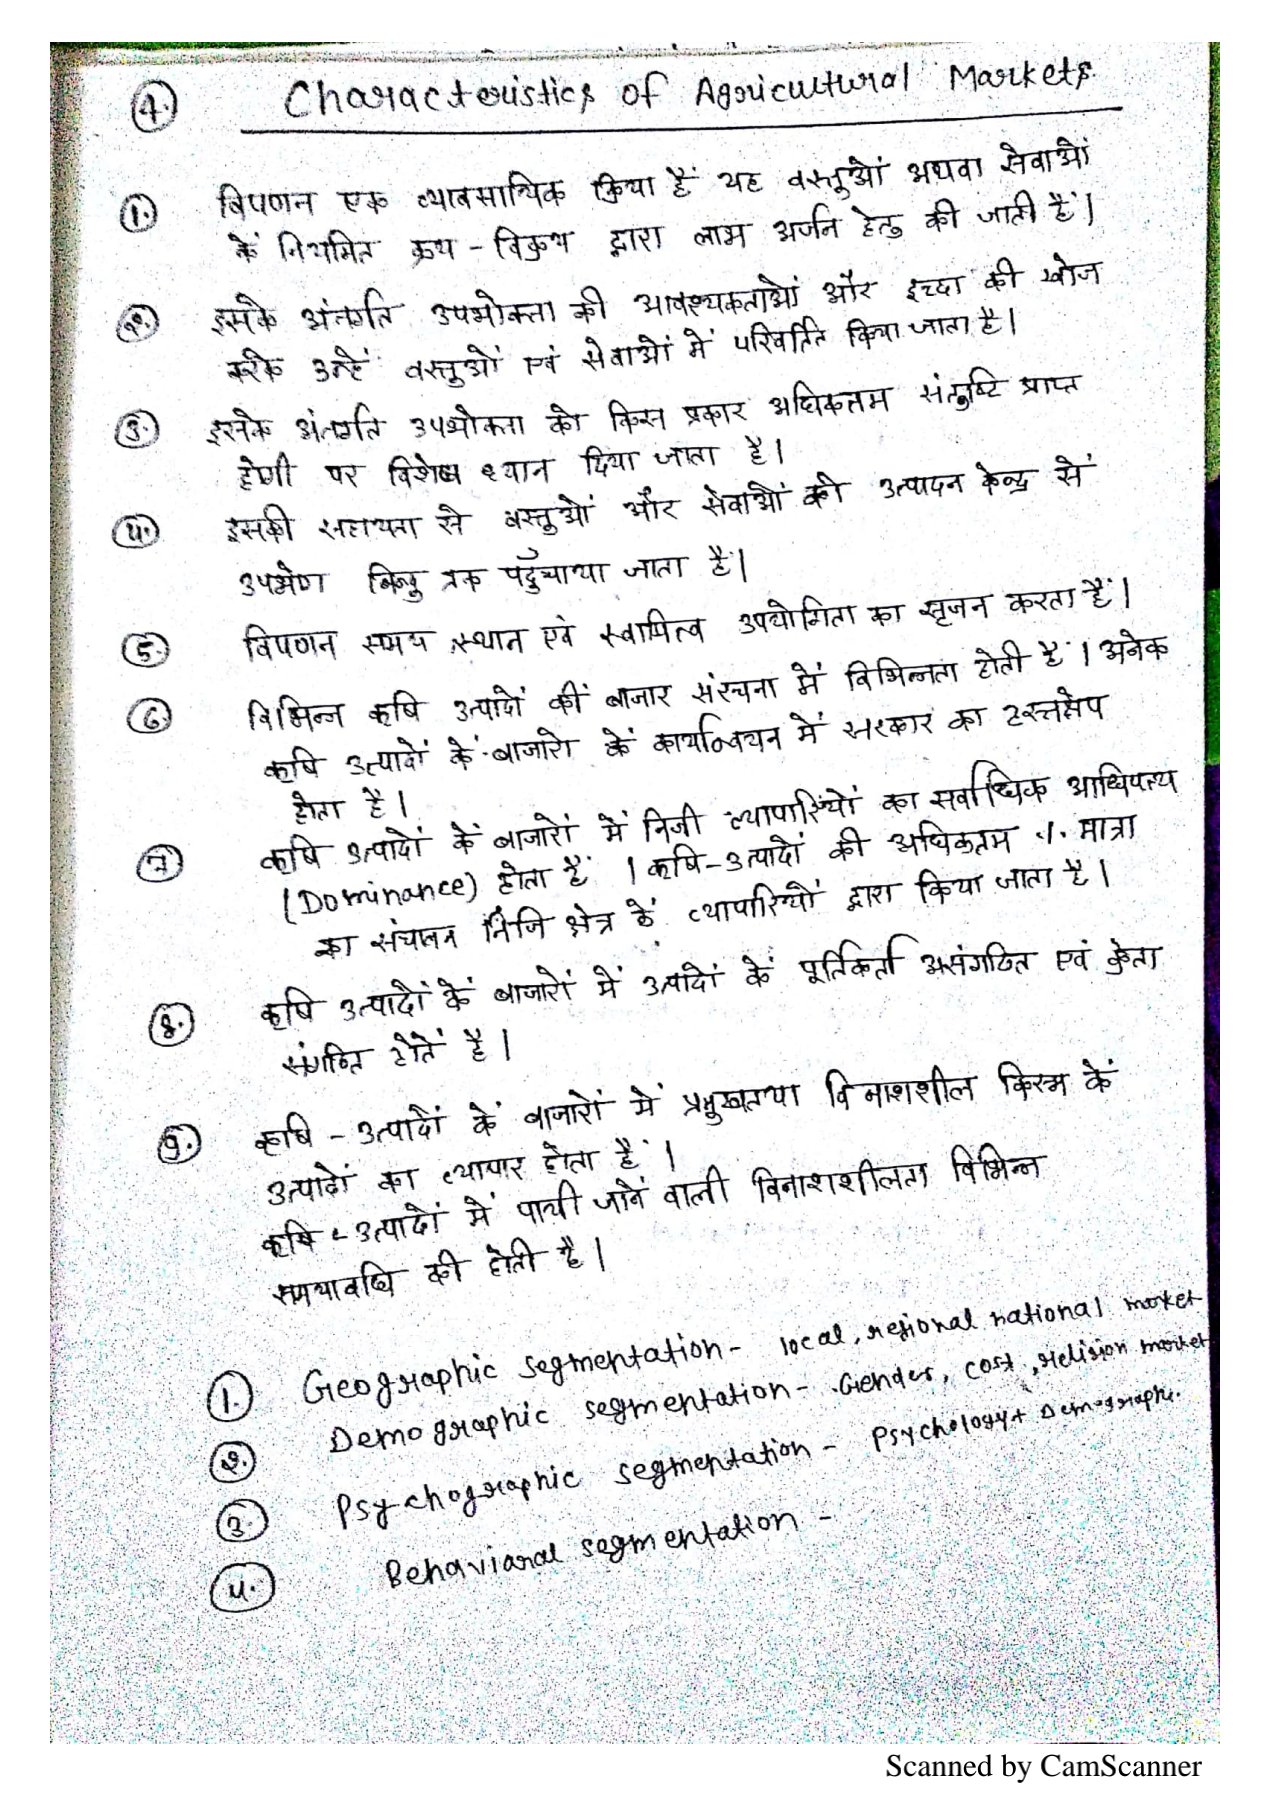 4. Characteristics of Agricultural Markets.
1. विपणन एक व्यावसायिक क्रिया हैं यह वस्तुओं अथवा सेवाओं
कें नियमित क्रय - विक्रय द्वारा लाभ अर्जन हेतु की जाती हैं।
2. इसके अंतर्गत उपभोक्ता की आवश्यकताओं और इच्छा की खोज
करके उन्हें वस्तुओं एवं सेवाओं में परिवर्तित किया जाता है।
3. इसके अंतर्गत उपभोक्ता को किस प्रकार अधिकतम संतुष्टि प्राप्त
होगी पर विशेष ध्यान दिया जाता है।
4. इसकी सहायता से वस्तुओं और सेवाओं को उत्पादन केन्द्र सें
उपभोग बिन्दु तक पहुँचाया जाता है।
5. विपणन समय स्थान एवं स्वामित्व उपयोगिता का सृजन करता हैं।
6. विभिन्न कृषि उत्पादों कीं बाजार संरचना में विभिन्नता होती है। अनेक
कृषि उत्पादों कें बाजारो कें कार्यान्वियन में सरकार का हस्तक्षेप
होता है।
7. कृषि उत्पादों कें बाजारों में निजी व्यापारियों का सर्वाधिक आधिपत्य
(Dominance) होता हैं । कृषि-उत्पादों की अधिकतम % मात्रा
का संचालन निजि क्षेत्र कें व्यापारियों द्वारा किया जाता है।
8. कृषि उत्पादों कें बाजारों में उत्पादों कें पूर्तिकर्ता असंगठित एवं क्रेता
संगठित होतें है।
9. कृषि - उत्पादों कें बाजारों में प्रमुखतया विनाशशील किस्म कें
उत्पादों का व्यापार होता है।
कृषि - उत्पादों में पायी जानें वाली विनाशशीलता विभिन्न
समयावधि की होती है।
1. Geographic segmentation - local, regional national market
2. Demographic segmentation - Gender, cost, religion market
3. Psychographic segmentation - Psychology + Demographi.
4. Behavioral segmentation -
Scanned by CamScanner